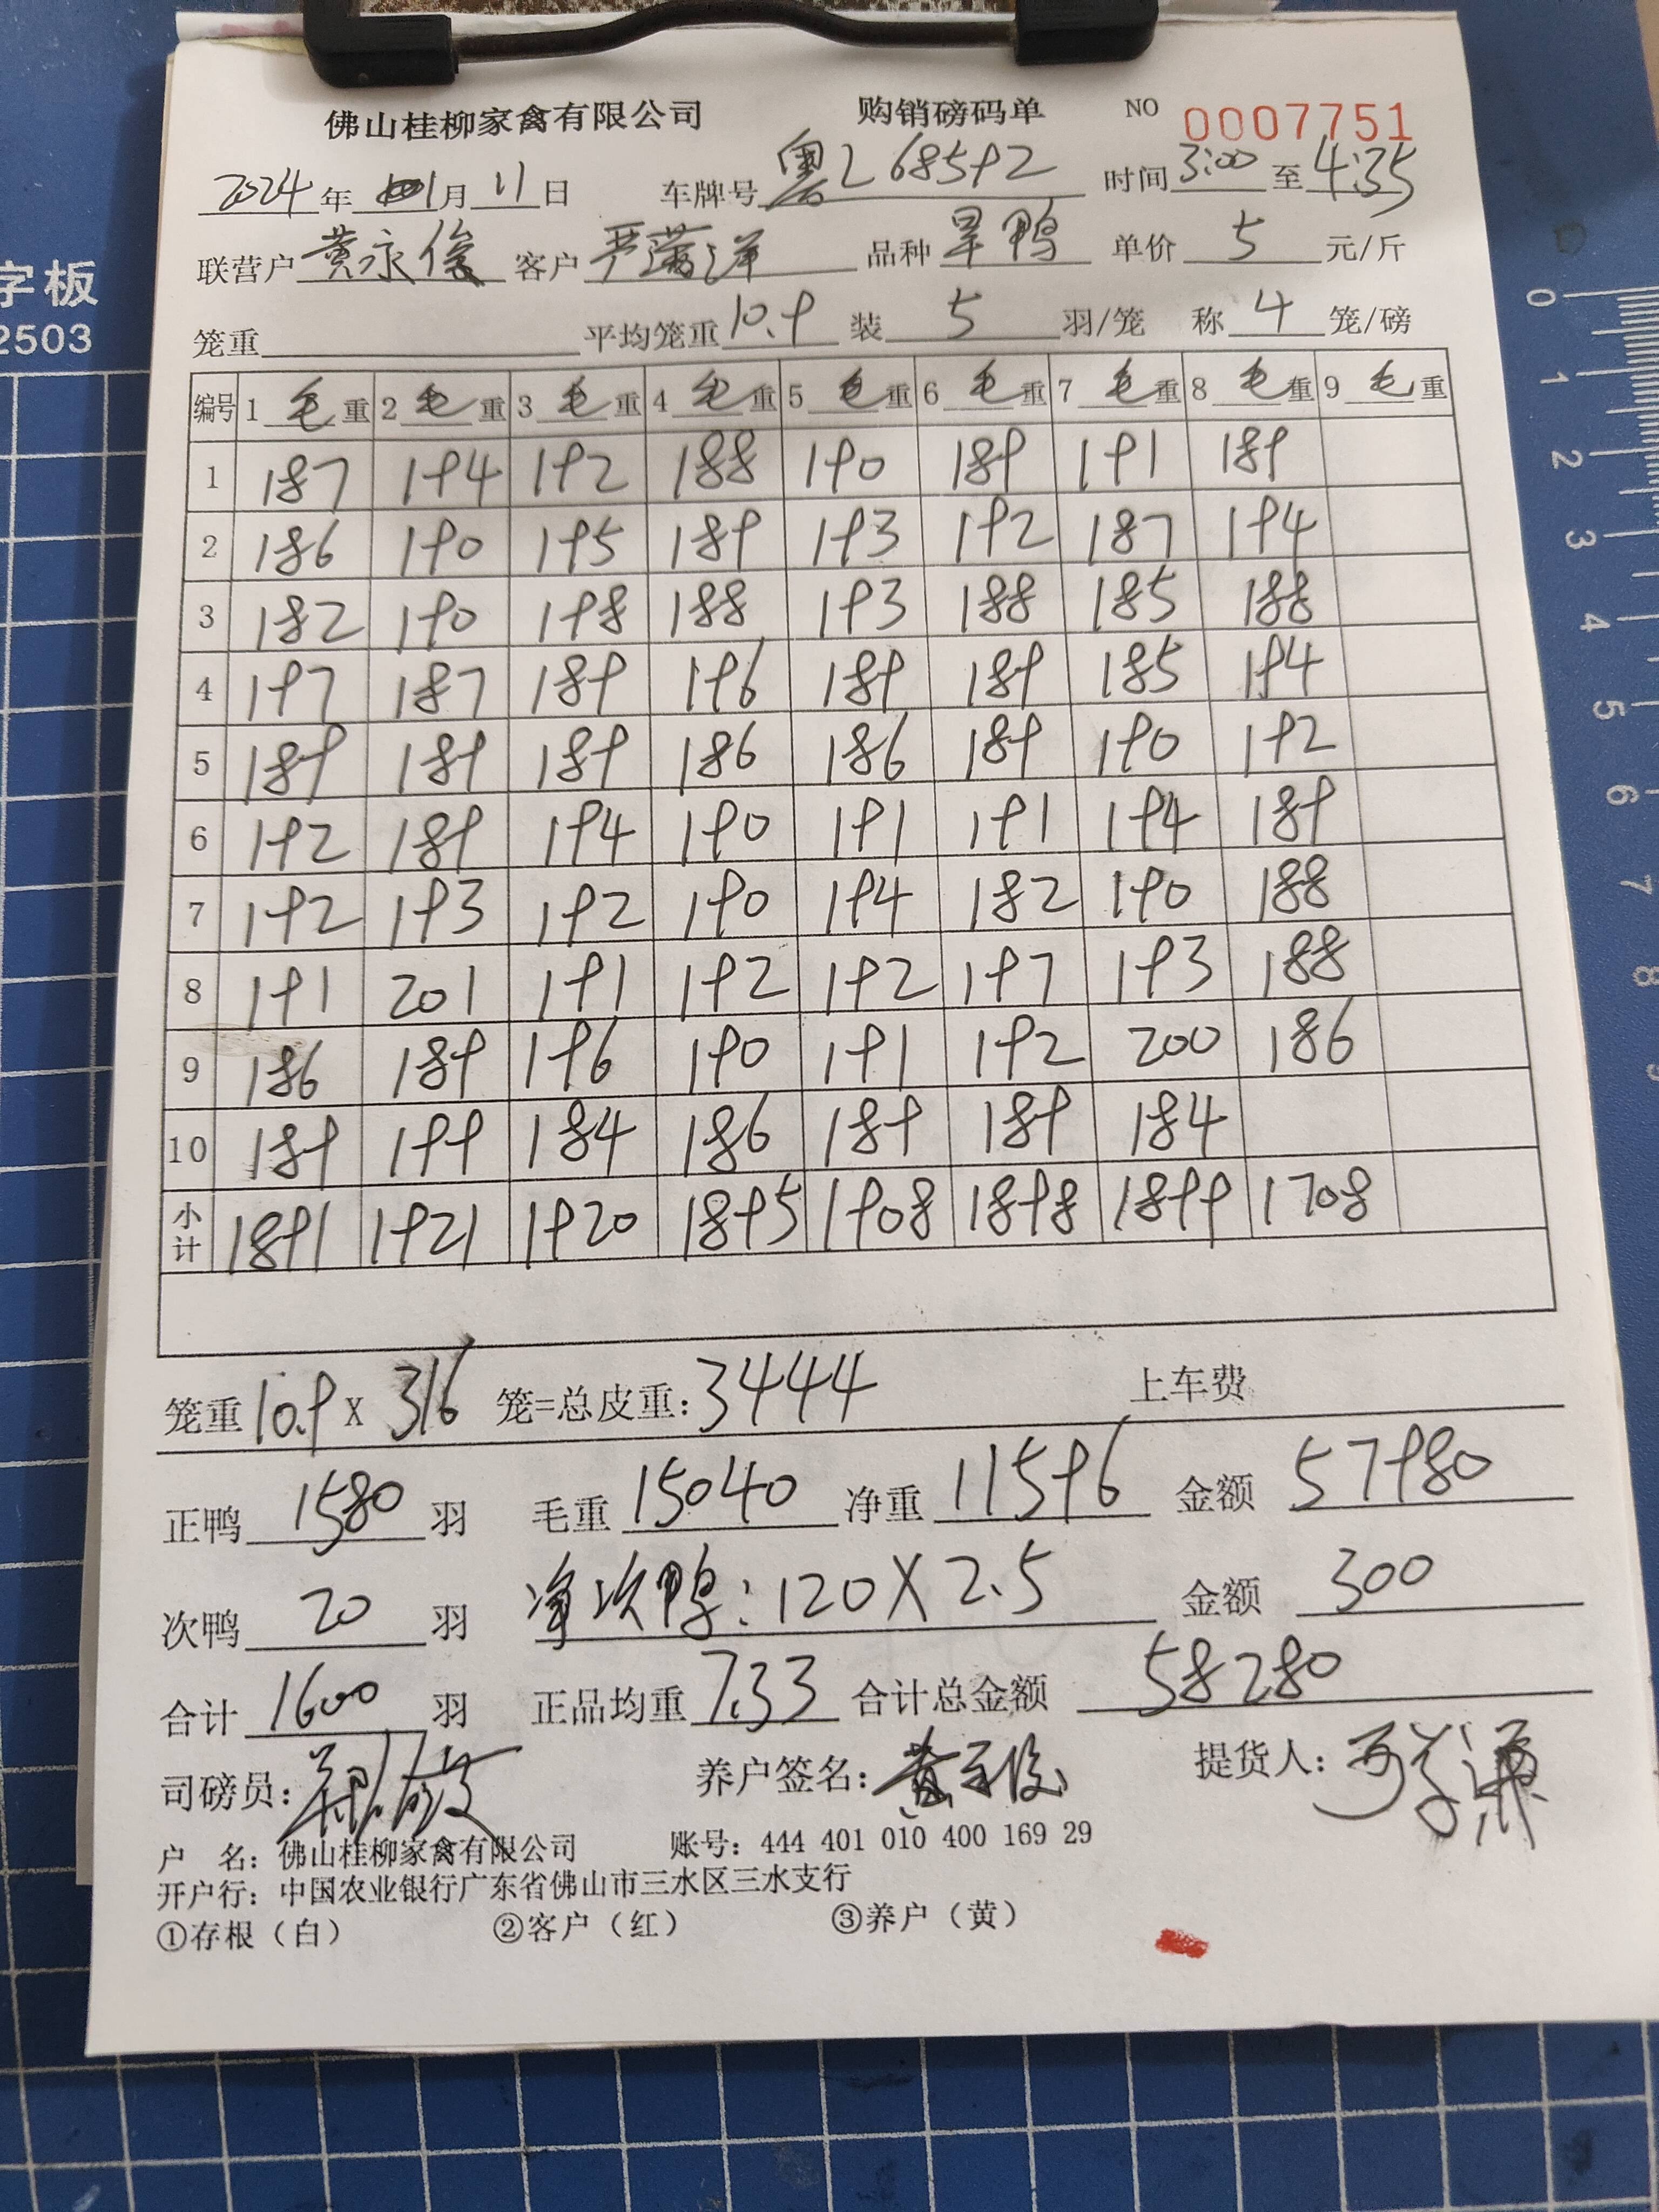 佛山桂柳家禽有限公司 购销磅码单 NO 0007751
2024年 月11日 车牌号 粤L68592 时间3:00至4:35
联营户 黄永俊 客户 严 洋 品种 旱鸭 单价 5 元/斤
笼重 平均笼重10.9 装 5 羽/笼 称 4 笼/磅
编号 1 毛重 2 毛重 3 毛重 4 毛重 5 毛重 6 毛重 7 毛重 8 毛重 9 毛重
1 187 194 192 188 190 189 191 189
2 186 190 195 189 193 192 187 194
3 182 190 198 188 193 188 185 188
4 197 187 189 196 189 189 185 194
5 189 189 189 186 186 189 190 192
6 192 189 194 190 191 191 194 189
7 192 193 192 190 194 182 190 188
8 191 201 191 192 192 197 193 188
9 186 189 196 190 191 192 200 186
10 189 199 184 186 189 189 184
小计 1891 1921 1920 1895 1908 1898 1899 1708
笼重10.9X 316 笼=总皮重:3444 上车费
正鸭 1580 羽 毛重 15040 净重 11596 金额 57980
次鸭 20 羽 净次鸭:120X2.5 金额 300
合计 1600 羽 正品均重 7.33 合计总金额 58280
司磅员: 养户签名:黄永俊 提货人:
户 名:佛山桂柳家禽有限公司 账号:444 401 010 400 169 29
开户行:中国农业银行广东省佛山市三水区三水支行
①存根(白) ②客户(红) ③养户(黄)
字板
2503
0
1
2
3
4
5
6
7
8
9